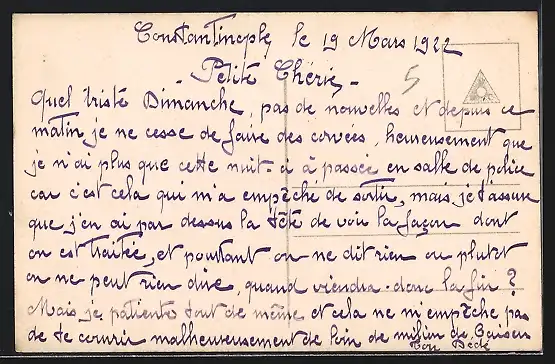 Constantinople, le 19 Mars 1922
5
- Petite Chérie, -
Quel triste Dimanche, pas de nouvelles et depuis ce
matin je ne cesse de faire des corvées, heureusement que
je n'ai plus que cette nuit-ci à passée en salle de police
car c'est cela qui m'a empêché de sortir, mais je t'assure
que j'en ai par dessus la tête de voir la façon dont
on est traitée, et pourtant on ne dit rien ou plutot
on ne peut rien dire, quand viendra-donc la fin ?
Mais je patiente tout de même et cela ne m'empêche pas
de te couvrir malheureusement de loin de million de Baisers
Ton Dédé